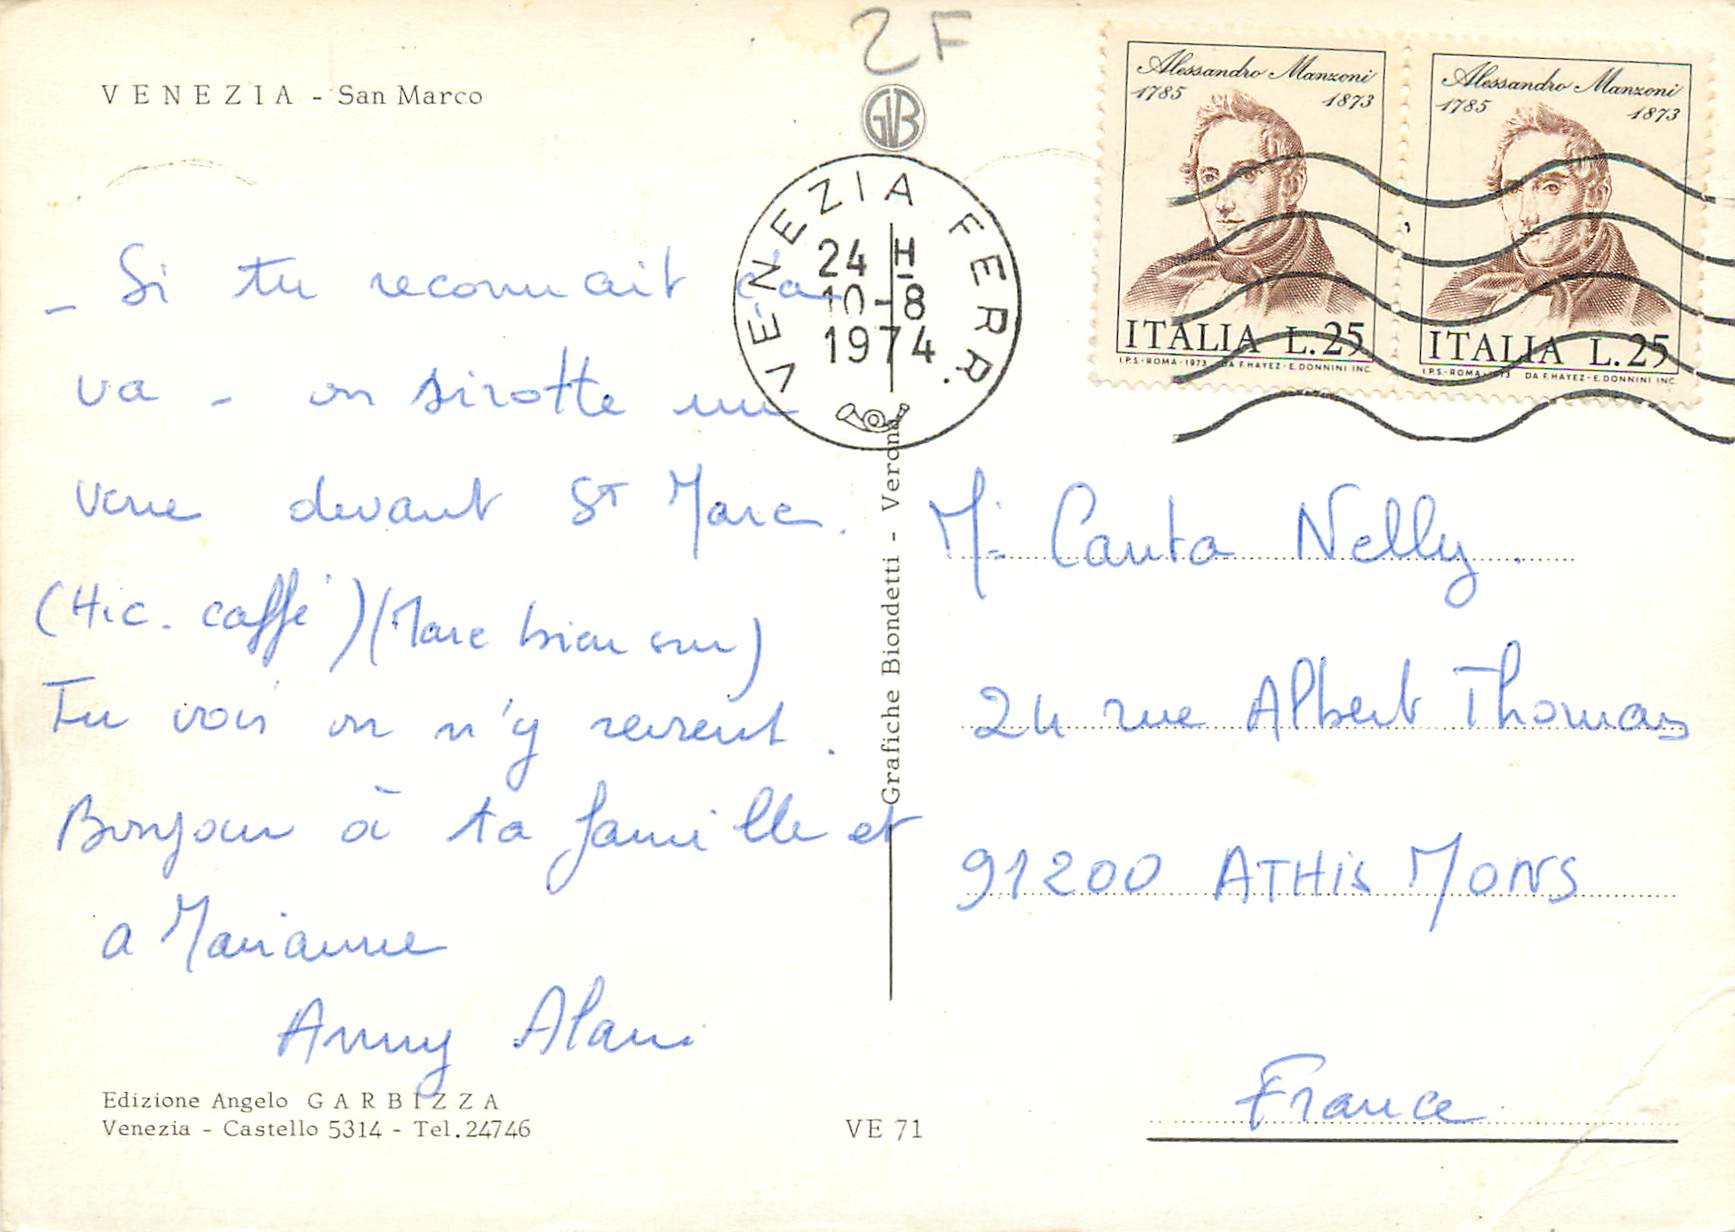 2F
VENEZIA - San Marco
GB
VENEZIA FERR.
24 H
10-8
1974
Alessandro Manzoni
1785 1873
ITALIA L.25
I.P.S.-ROMA-1973 DA F.HAYEZ-E.DONNINI INC.
Alessandro Manzoni
1785 1873
ITALIA L.25
I.P.S.-ROMA-1973 DA F.HAYEZ-E.DONNINI INC.
- Si tu reconnait ca
va - on sirotte un
verre devant St Marc.
(Hic. caffé) (Marc bien sur)
Tu vois on n'y revient.
Bonjour à ta famille et
a Marianne
Anny Alain
Edizione Angelo GARBIZZA
Venezia - Castello 5314 - Tel.24746
VE 71
Grafiche Biondetti - Verona
Canta Nelly.
24 rue Albert Thomas
91200 ATHIS MONS
France